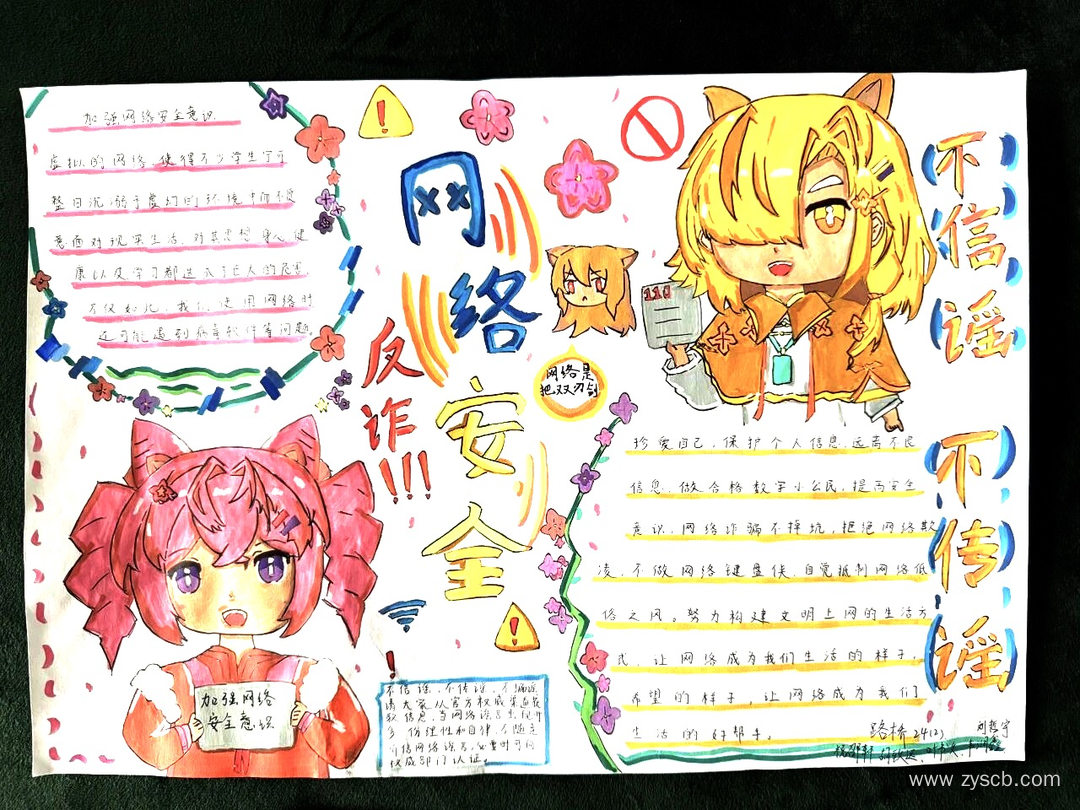 加强网络安全意识
虚拟的网络使得不少学生宁可
整日沉溺于虚幻的环境中而不愿
意面对现实生活，对其思想身心健
康以及学习都造成了巨大的危害。
不仅如此，我们使用网络时
还可能遇到病毒软件等问题。
网络安全
反诈!!!
110
网络是
把双刃剑
不信谣
不传谣
珍爱自己，保护个人信息，远离不良
信息，做合格数字小公民，提高安全
意识，网络诈骗不掉坑，拒绝网络欺
凌，不做网络键盘侠，自觉抵制网络低
俗之风。努力构建文明上网的生活方
式，让网络成为我们生活的样子，
希望的样子，让网络成为我们
生活的好帮手。
加强网络
安全意识
不信谣，不传谣，不
请大家从官方权威渠道获
取信息，当网络谣言出现时
多一份理性和自律，不随意
信网络谣言，必要时可向
权威部门认证。
路桥 24(2)
www.zyscb.com